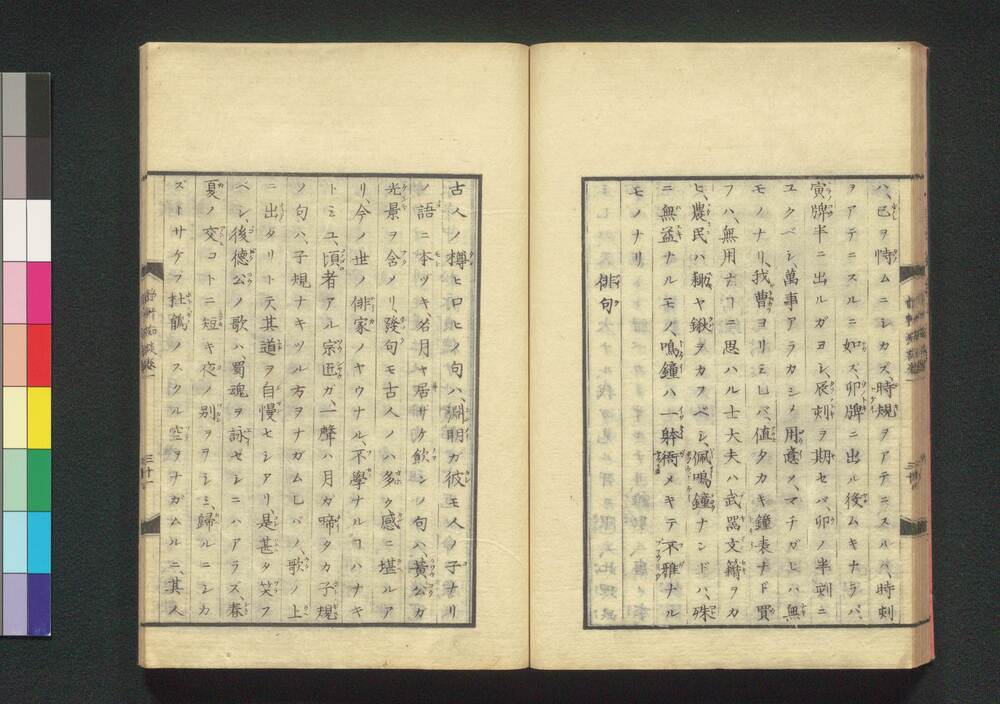 ハ、已ヲ恃ムニシカズ、時規ヲアテニスルハ、時刻
ヲアテニスルニ如ズ、卯牌ニ出ル後ムキナラバ、
寅牌半ニ出ルガヨシ、辰刻ヲ期セバ、卯ノ半刻ニ
ユクベシ、萬事アラカシメ用意ノマチガヒハ無
モノナリ、我曹ヨリミヒバ、値タカキ鐘表ナド買
フハ、無用ナコニ思ハル士大夫ハ武器文籍ヲカ
ヒ、農民ハ耡ヤ鍬ヲカフベシ、佩鳴鐘ナンドハ、殊
ニ無益ナルモノ、鳴鐘ハ一躰衙メキテ不雅ナル
モノナリ
俳句
古人ノ樽ヒロヒノ句ハ、淵明ガ彼モ人ノ子ナリ
ノ語ニ本ヅキ、名月ヤ居ザケ飲ンノ句ハ、黄公ガ
光景ヲ含ノリ發句モ古人ノハ多ク感ニ堪ルア
リ、今ノ世ノ俳家ノヤウナル、不學ナルコハナキ
トミユ、頃者アル宗匠ガ、一聲ハ月ガ啼タカ子規
ノ句ハ、子規ナキツル方ヲナガムヒバノ、歌ノ上
ニ出タリトテ其道ヲ自慢セシアリ、是甚タ笑フ
ベシ、後德公ノ歌ハ、蜀魂ヲ詠ゼシニハアラズ、春
夏ノ交コトニ短キ夜ノ別ヲヲシミ歸ルニシカ
ズトサケフ杜鵑ノスクル空ヲナガムルニ、其人